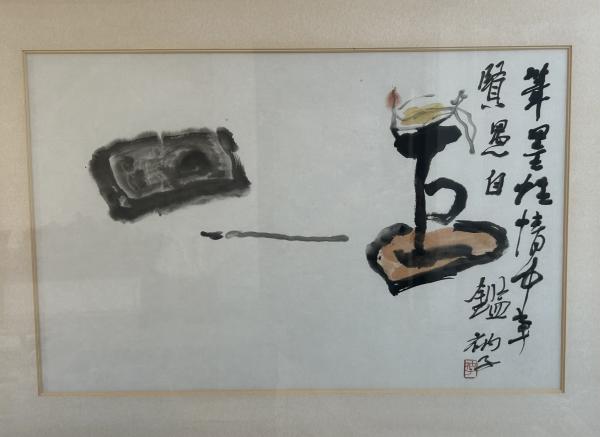 筆墨性情中事
賢愚自
鑑 衲子